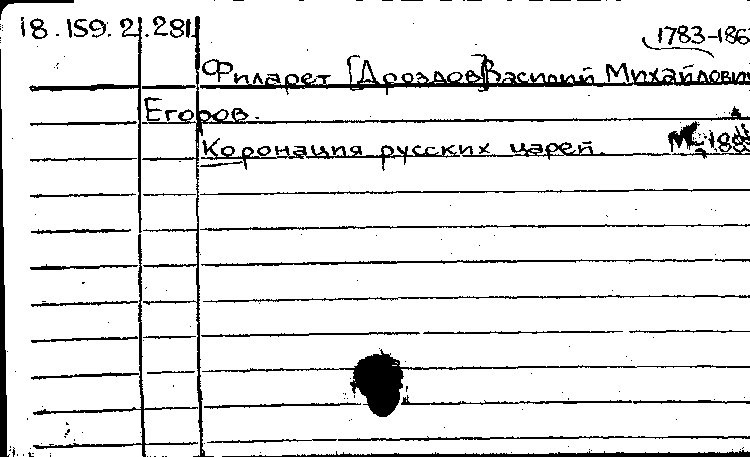 18.159.2.281
1783-186
Филарет [Дроздов] Василий Михайлович
Егоров.
Коронация русских царей. М., 188